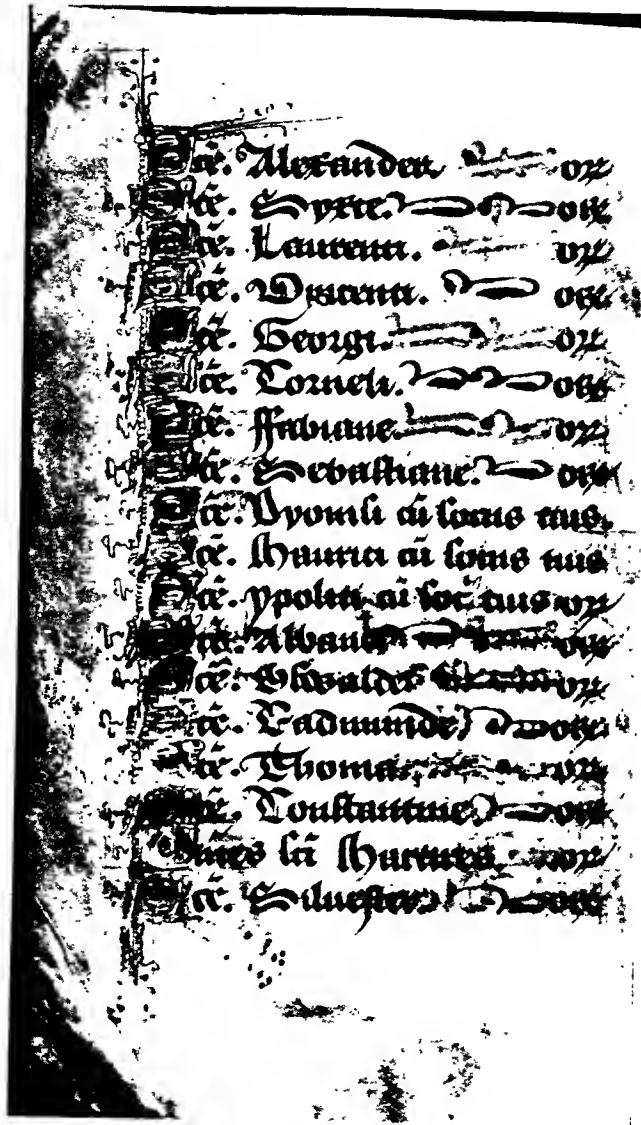 Scē. Alexander or
Scē. Syxte. or
Scē. Laurenti. or
Scē. Vincenti. or
Scē. Georgi. or
Scē. Corneli. or
Scē. ffabiane. or
Scē. Sebastiane. or
Scē. Dyonisi cū sociis tuis.
Scē. Maurici cū sociis tuis
Scē. ypoliti cū soc̄ tuis or
Scē. Albane or
Scē. Oswalde or
Scē. Eadmunde or
Scē. Thoma or
Scē. Constantine or
Omnes scī Martires. or
Scē. Siluester or